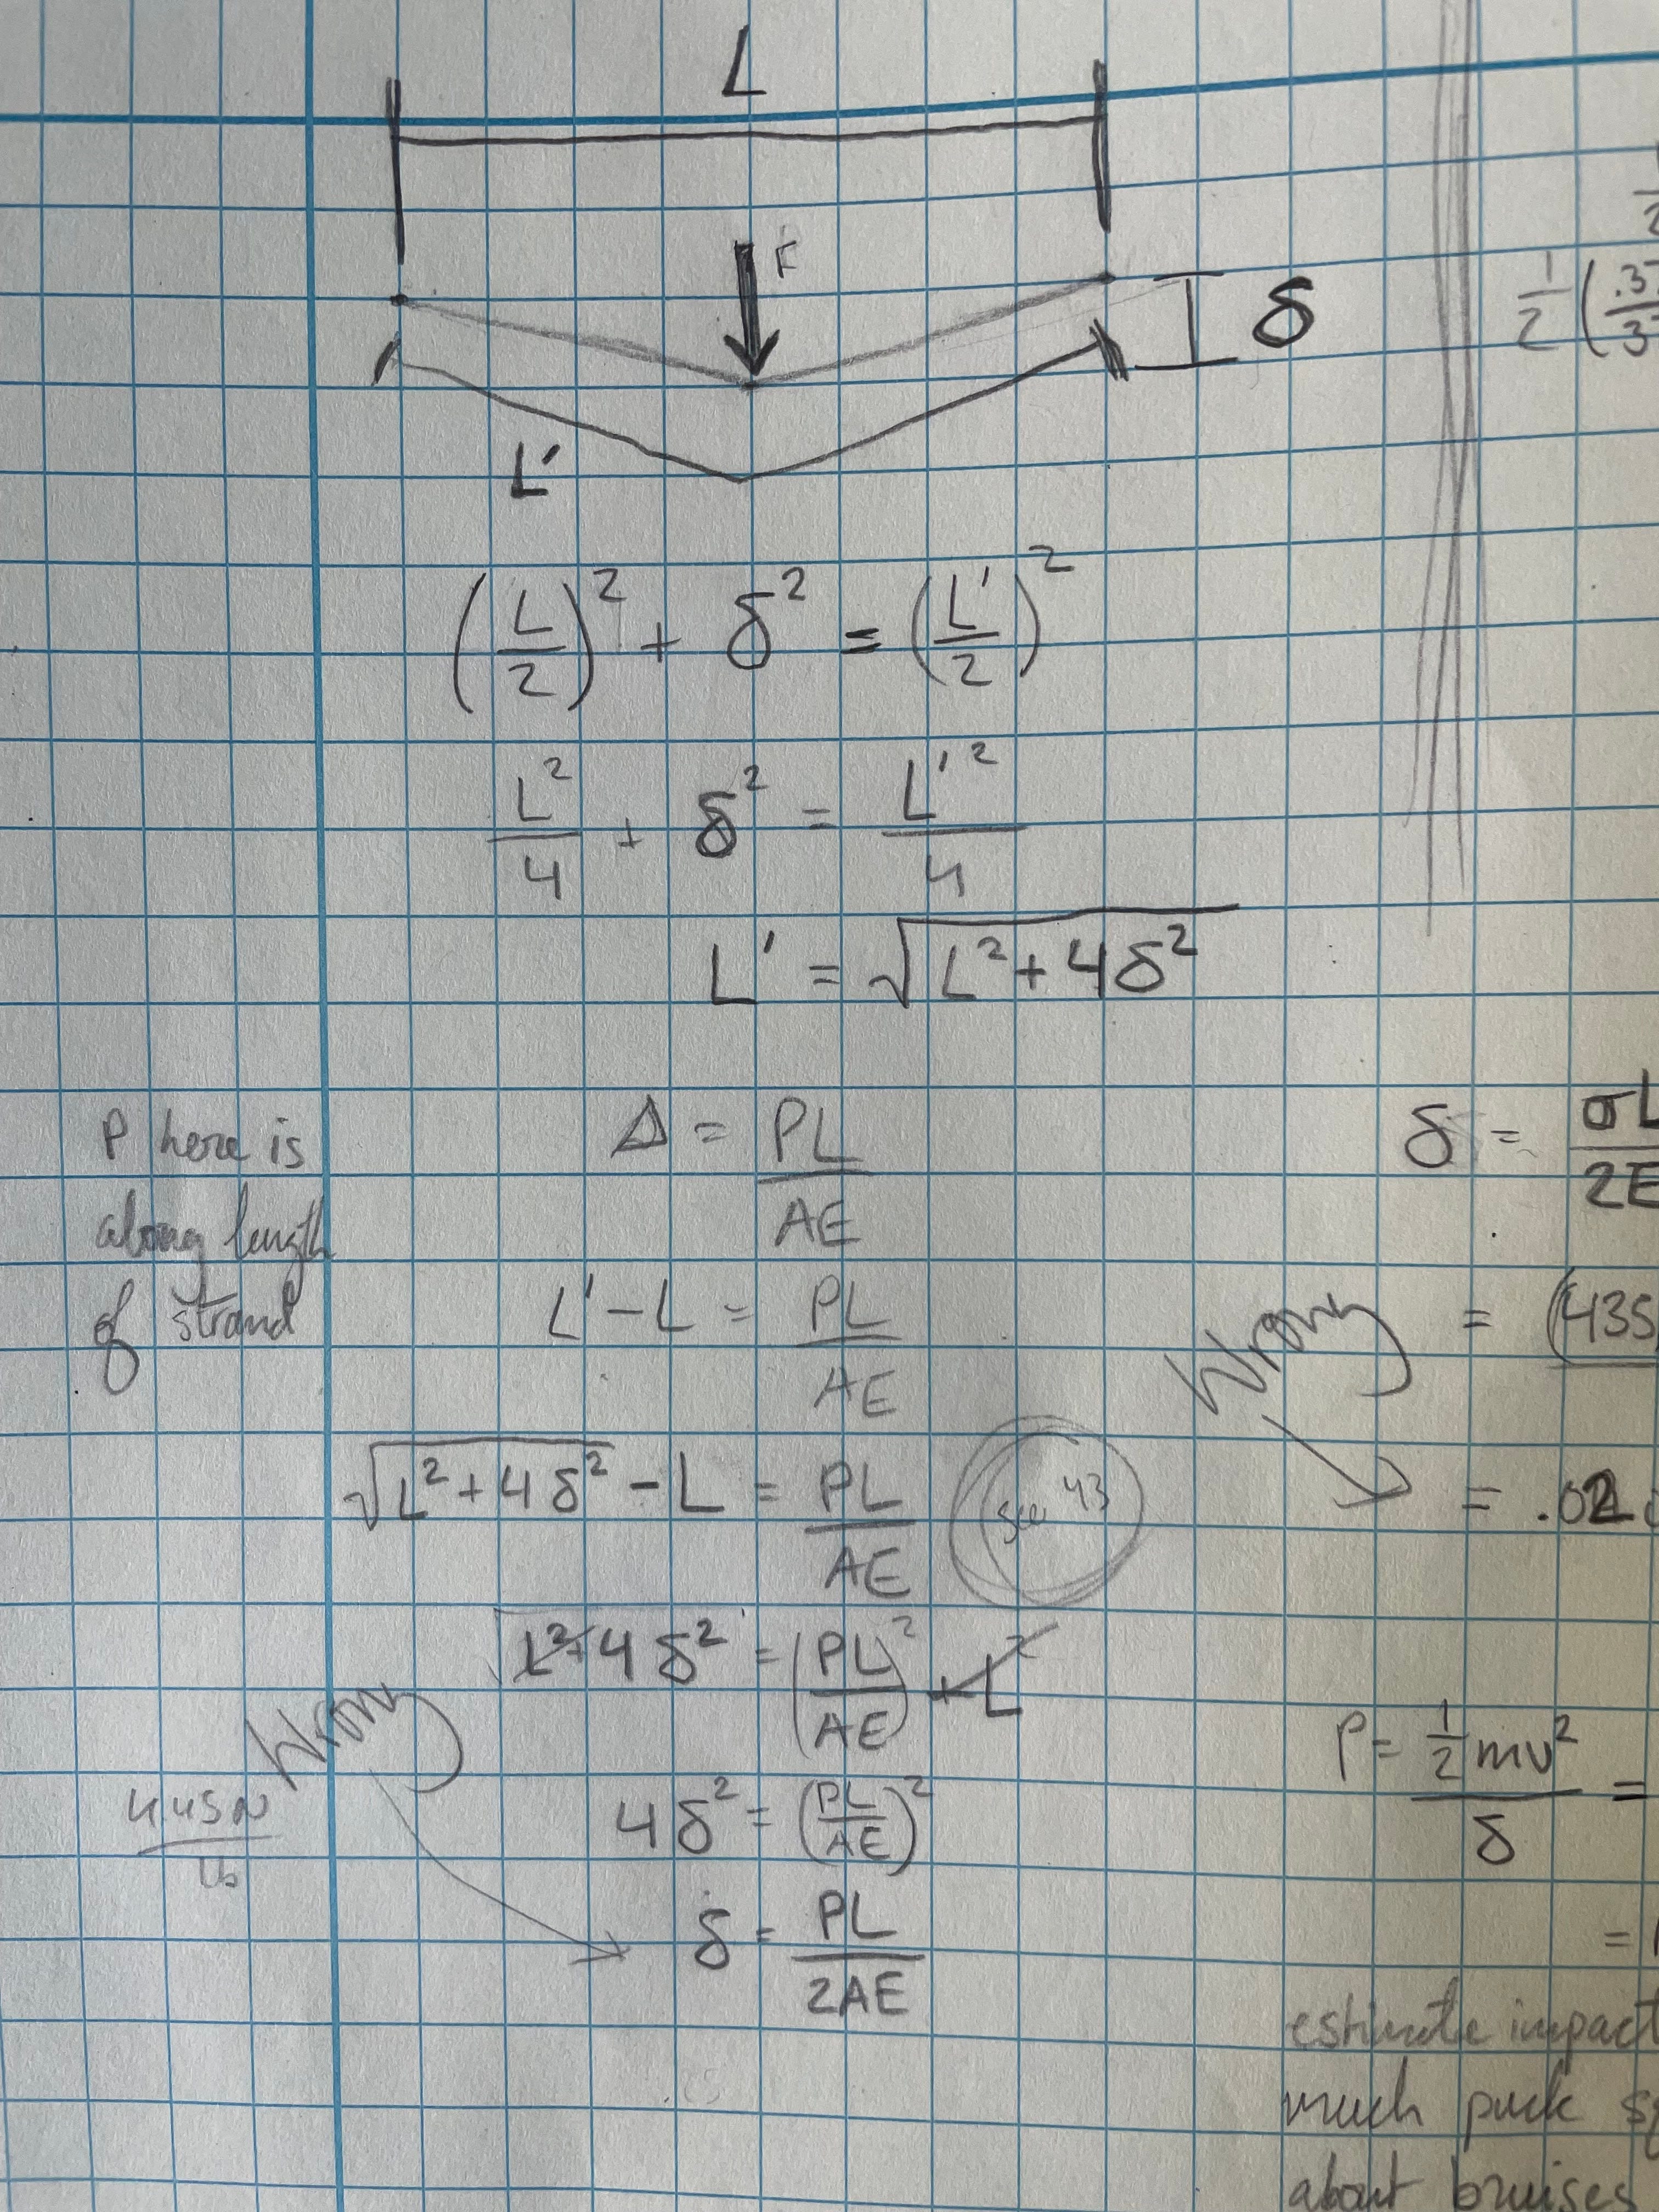 L
F
δ
L'
(L/2)² + δ² = (L'/2)²
L²/4 + δ² = L'²/4
L' = √(L² + 4δ²)
P here is
along length
of strand
Δ = PL/AE
L' - L = PL/AE
√(L² + 4δ²) - L = PL/AE
see 43
L² + 4δ² = (PL/AE)² + L²
Wrong
4δ² = (PL/AE)²
δ = PL/2AE
lb
1/2 (.37
δ = σL/2E
Wrong
= (435
= .02
P = ½mv²/δ =
=
estimate impact
much puck
about bruises